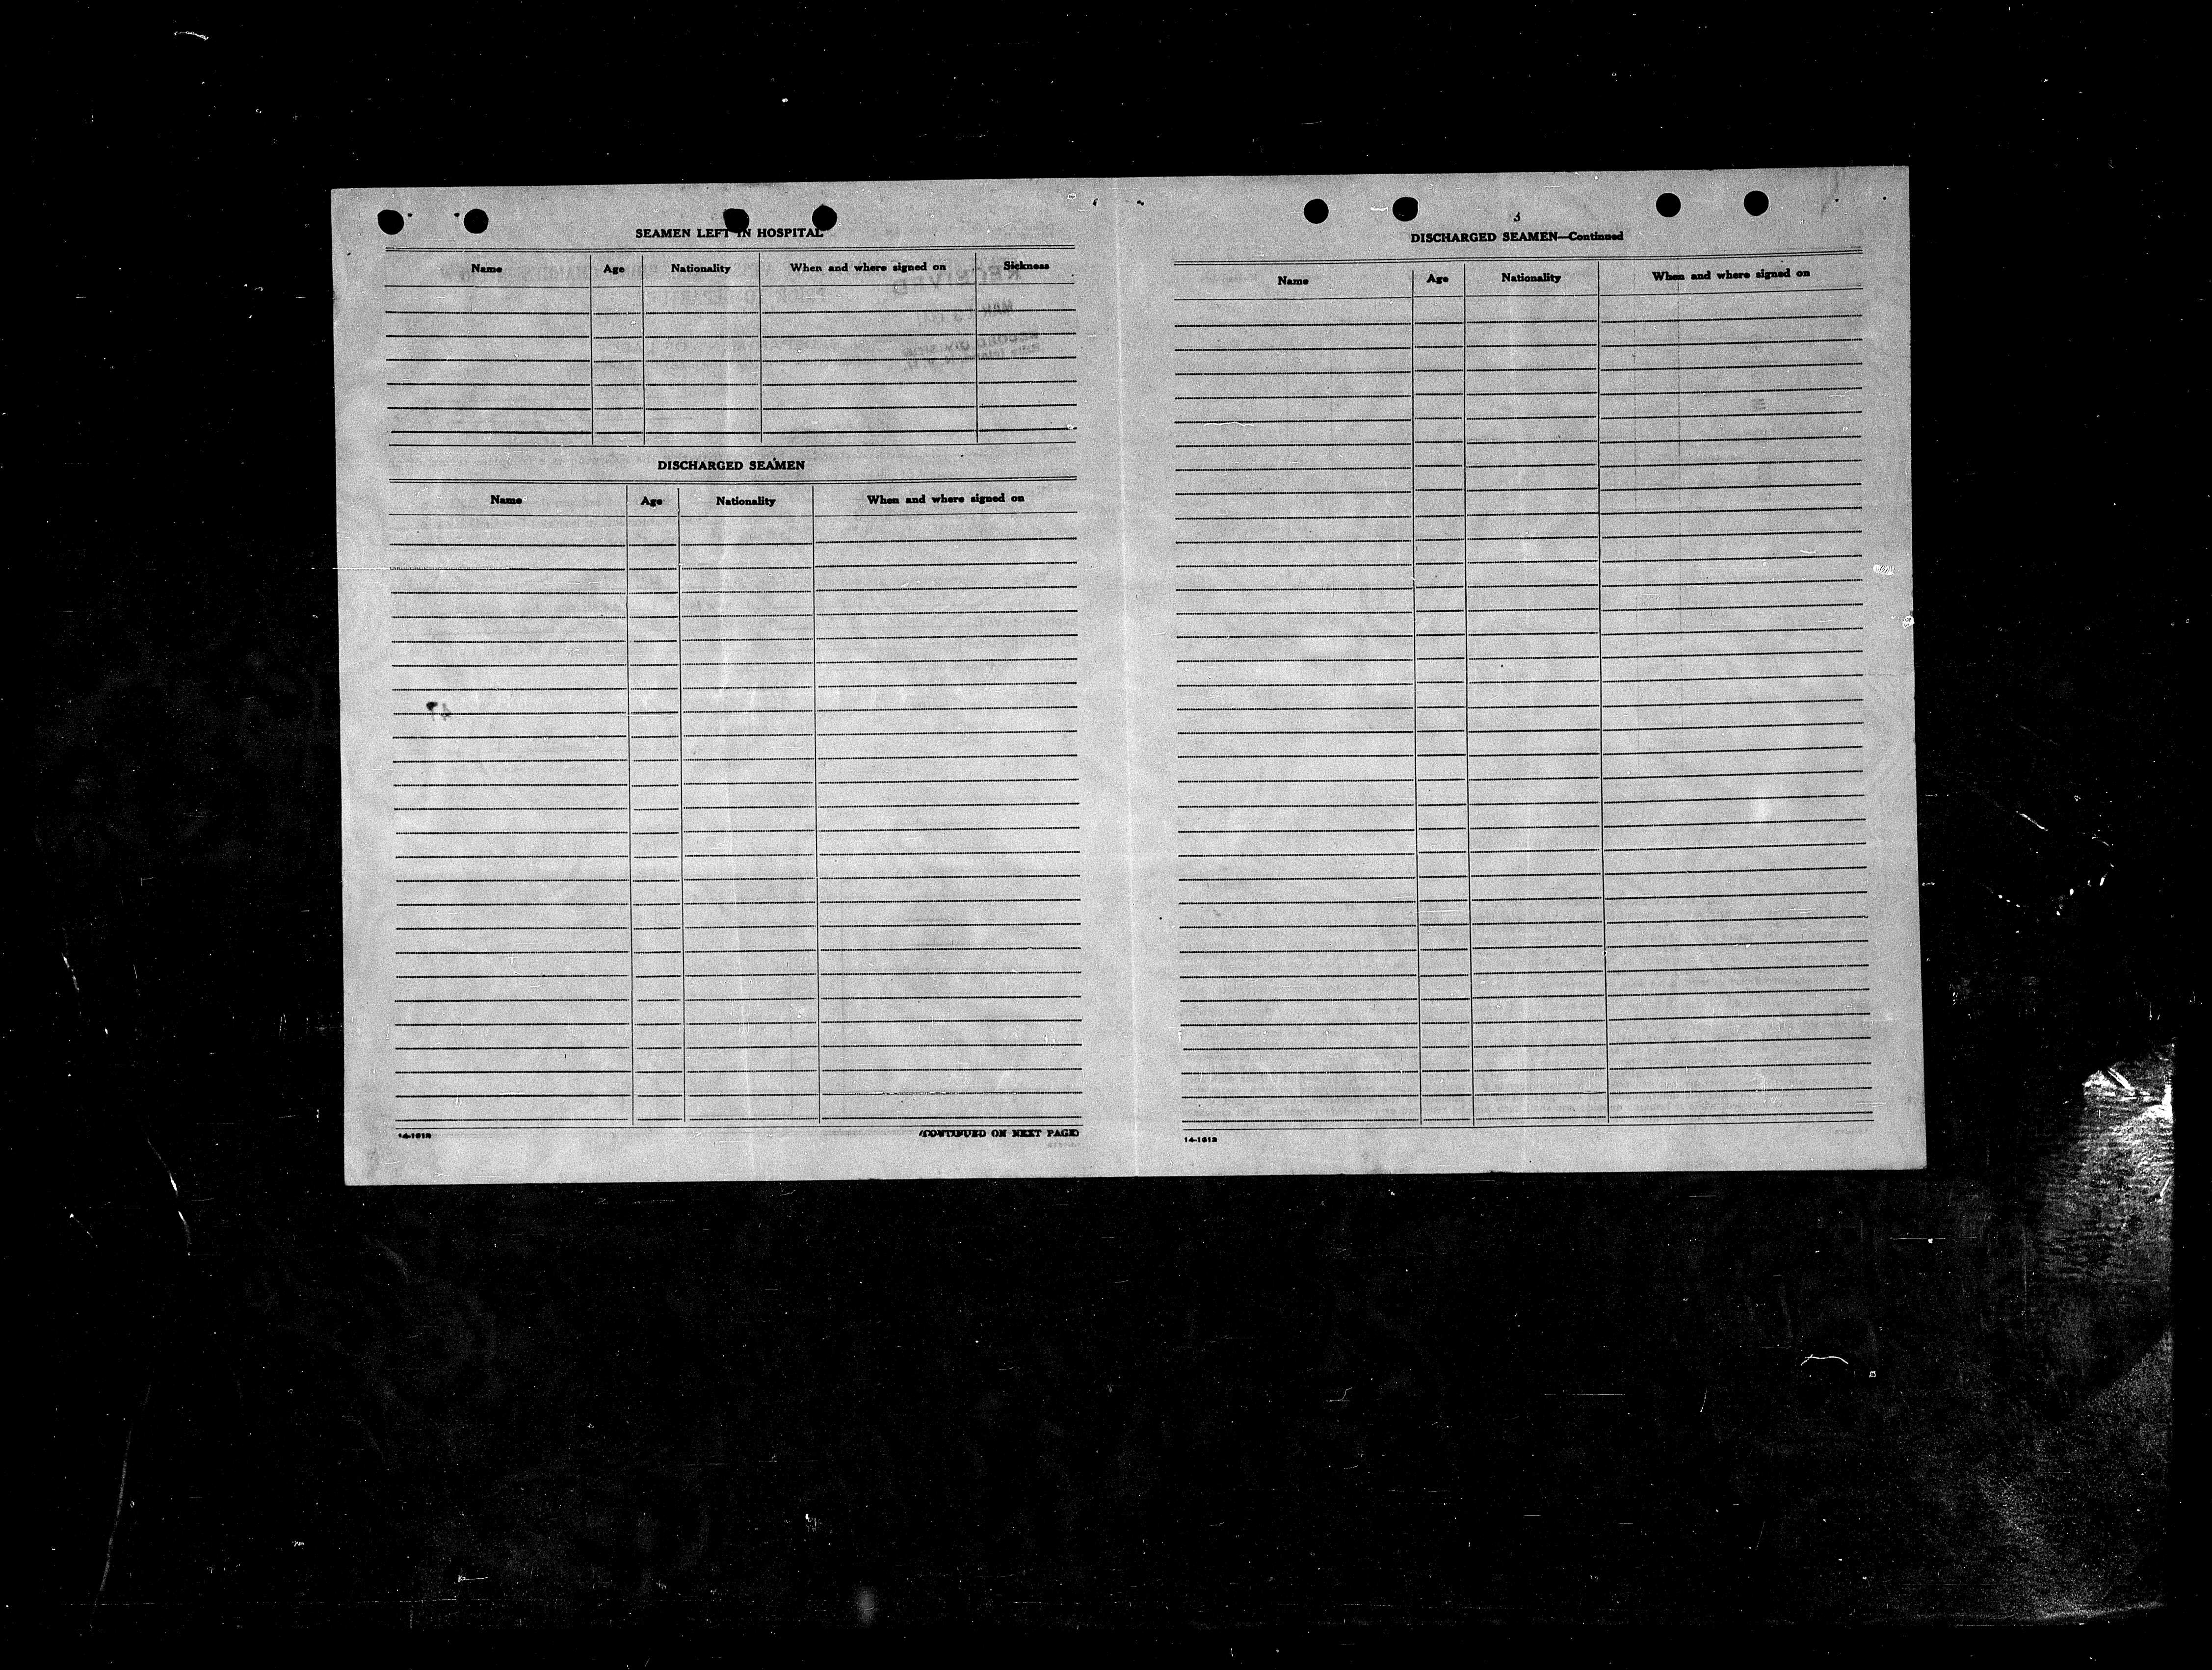 SEAMEN LEFT IN HOSPITAL
Name Age Nationality When and where signed on Sickness
DISCHARGED SEAMEN
Name Age Nationality When and where signed on
14-1612
(CONTINUED ON NEXT PAGE)
3
DISCHARGED SEAMEN—Continued
Name Age Nationality When and where signed on
14-1612